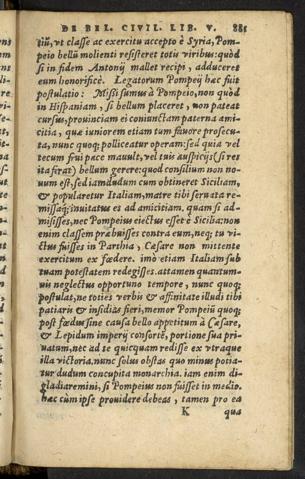 DE BEL. CIVIL. LIB. V. 881
tiũ, vt classe ac exercitu accepto è Syria, Pom-
peio bellũ molienti resisteret totis viribus: quòd
si in fidem Antonij mallet recipi, adduceret
eum honorificè. Legatorum Pompeij hæc fuit
postulatio: Missi sumus à Pompeio, non quòd
in Hispaniam, si bellum placeret, non pateat
cursus, prouinciam ei coniunctam paterna ami-
citia, quæ iuniorem etiam tum fauore prosecu-
ta, nunc quoq; polliceatur operam: sed quia vel
tecum frui pace mauult, vel tuis auspicijs (si res
ita ferat) bellum gerere: quod consilium non no-
uum est, sed iamdudum cum obtineret Siciliam,
& popularetur Italiam, matre tibi seruata re-
missaq́; inuitatus et ad amicitiam, quam si ad-
misisses, nec Pompeius eiectus esset è Sicilia: non
enim classem præbuisses contra eum, neq; tu vi-
ctus fuisses in Parthia, Cæsare non mittente
exercitum ex fœdere. imò etiam Italiam sub
tuam potestatem redegisses. attamen quantum-
uis neglectus opportuno tempore, nunc quoq;
postulat, ne toties verbis & affinitate illudi tibi
patiaris & insidias fieri, memor Pompeiũ quoq;
post fœdus sine causa bello appetitum à Cæsare,
& Lepidum imperij consortẽ, portione sua pri-
uatum, nec ad te quicquam redisse ex vtraque
illa victoria. nunc solus obstas quo minus potia-
tur dudum concupita monarchia. iam enim di-
gladiaremini, si Pompeius non fuisset in medio.
hæc cùm ipse prouidere debeas, tamen pro ea
K qua